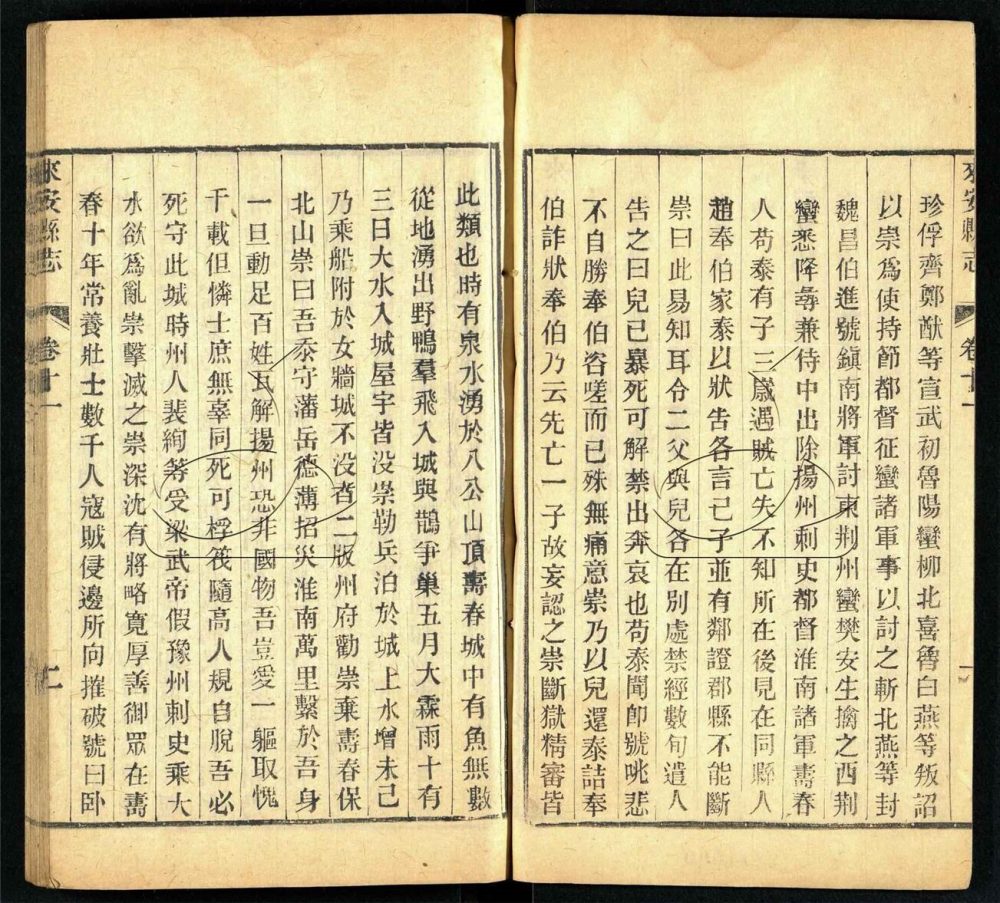 來安縣志
卷十一
一
珍俘齊鄭猷等宣武初魯陽蠻柳北喜魯白燕等叛詔
以崇爲使持節都督征蠻諸軍事以討之斬北燕等封
魏昌伯進號鎭南將軍討東荆州蠻樊安生擒之西荆
蠻悉降尋兼侍中出除揚州刺史都督淮南諸軍壽春
人苟泰有子三歲遇賊亡失不知所在後見在同縣人
趙奉伯家泰以狀告各言己子並有鄰證郡縣不能斷
崇曰此易知耳令二父與兒各在別處禁經數旬遣人
告之曰兒已暴死可解禁出奔哀也苟泰聞卽號咷悲
不自勝奉伯咨嗟而已殊無痛意崇乃以兒還泰詰奉
伯詐狀奉伯乃云先亡一子故妄認之崇斷獄精審皆
此類也時有泉水湧於八公山頂壽春城中有魚無數
從地湧出野鴨羣飛入城與鵲爭巢五月大霖雨十有
三日大水入城屋宇皆没崇勒兵泊於城上水增未已
乃乘船附於女牆城不没者二版州府勸崇棄壽春保
北山崇曰吾忝守藩岳德薄招災淮南萬里繫於吾身
一旦動足百姓瓦解揚州恐非國物吾豈愛一軀取愧
千載但憐士庶無辜同死可桴筏隨高人規自脫吾必
死守此城時州人裴絢等受梁武帝假豫州刺史乘大
水欲爲亂崇擊滅之崇深沈有將略寛厚善御眾在壽
春十年常養壯士數千人寇賊侵邊所向摧破號曰卧
來安縣志
卷十一
二